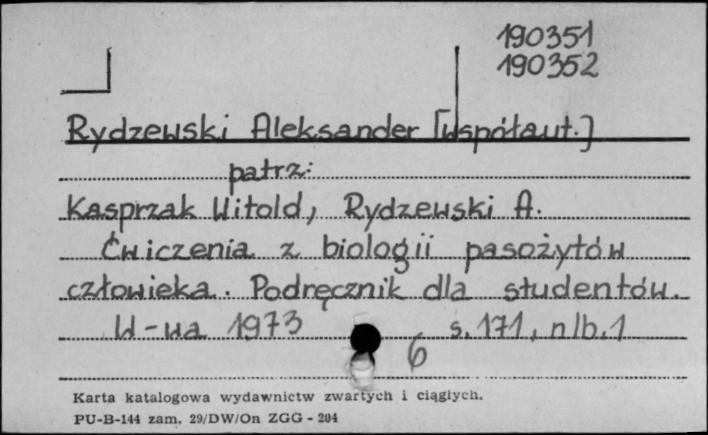 190351
190352
Rydzewski Aleksander [współaut.]
patrz:
Kasprzak Witold, Rydzewski A.
Ćwiczenia z biologii pasożytów
człowieka. Podręcznik dla studentów.
W-wa 1973 s. 171, nlb. 1
6
Karta katalogowa wydawnictw zwartych i ciągłych.
PU-B-144 zam. 29/DW/On ZGG - 204